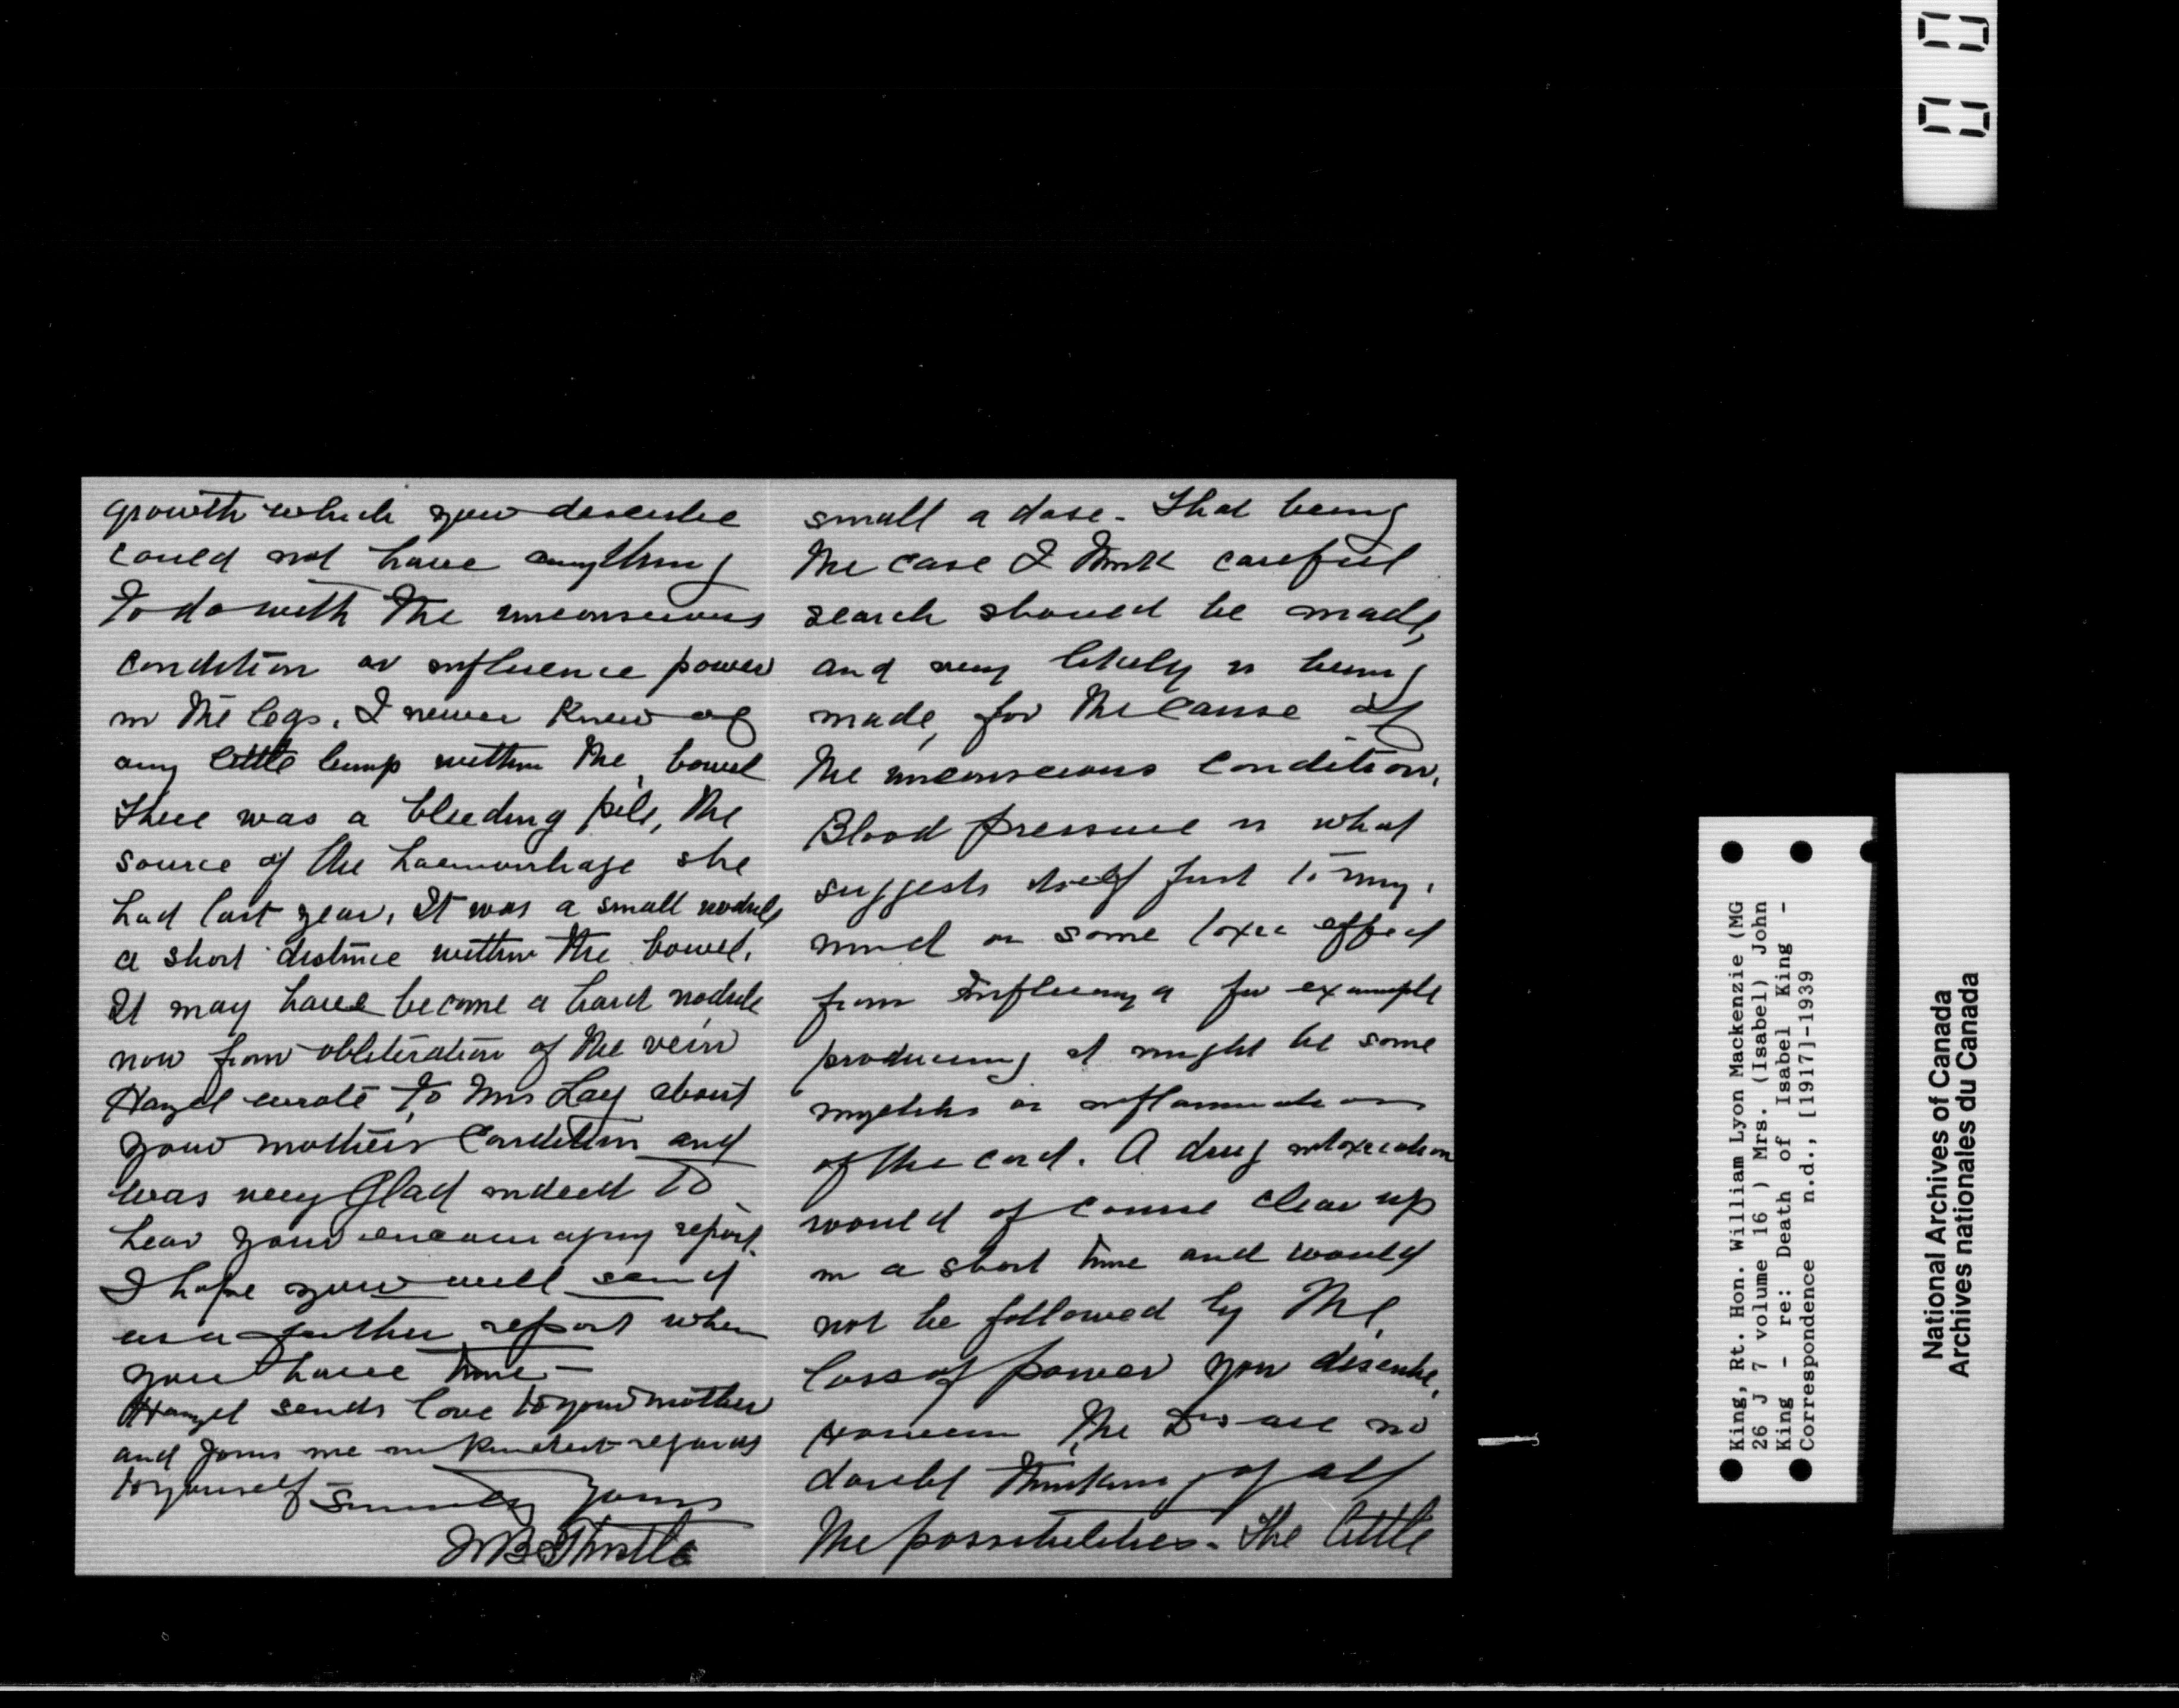 small a dose. That being
the case I think careful
search should be made,
and very likely is being
made, for the cause of
the unconscious condition.
Blood pressure is what
suggests itself first to my
mind or some toxic effect
from Influenza for example
producing it might be some
myelitis or inflammation
of the cord. A drug intoxication
would of course clear up
in a short time and would
not be followed by the
loss of power you describe.
However the Drs are no
doubt thinking of all
the possibilities. The little
growth which you describe
could not have anything
to do with the unconscious
condition or influence power
in the legs. I never knew of
any little lump within the bowel
There was a bleeding pile, the
source of the haemorrhage she
had last year. It was a small nodule
a short distance within the bowel.
It may have become a hard nodule
now from obliteration of the vein
Hazel wrote to Mrs Lay about
your mothers condition and
was very glad indeed to
hear your encouraging report.
I hope you will send
us a further report when
you have time –
Hazel sends love to your mother
and joins me in kindest regards
to yourself Sincerely yours
WB Thistle
King, Rt. Hon. William Lyon Mackenzie (MG
26 J 7 volume 16 ) Mrs. (Isabel) John
King - re: Death of Isabel King -
Correspondence n.d., [1917]-1939
National Archives of Canada
Archives nationales du Canada